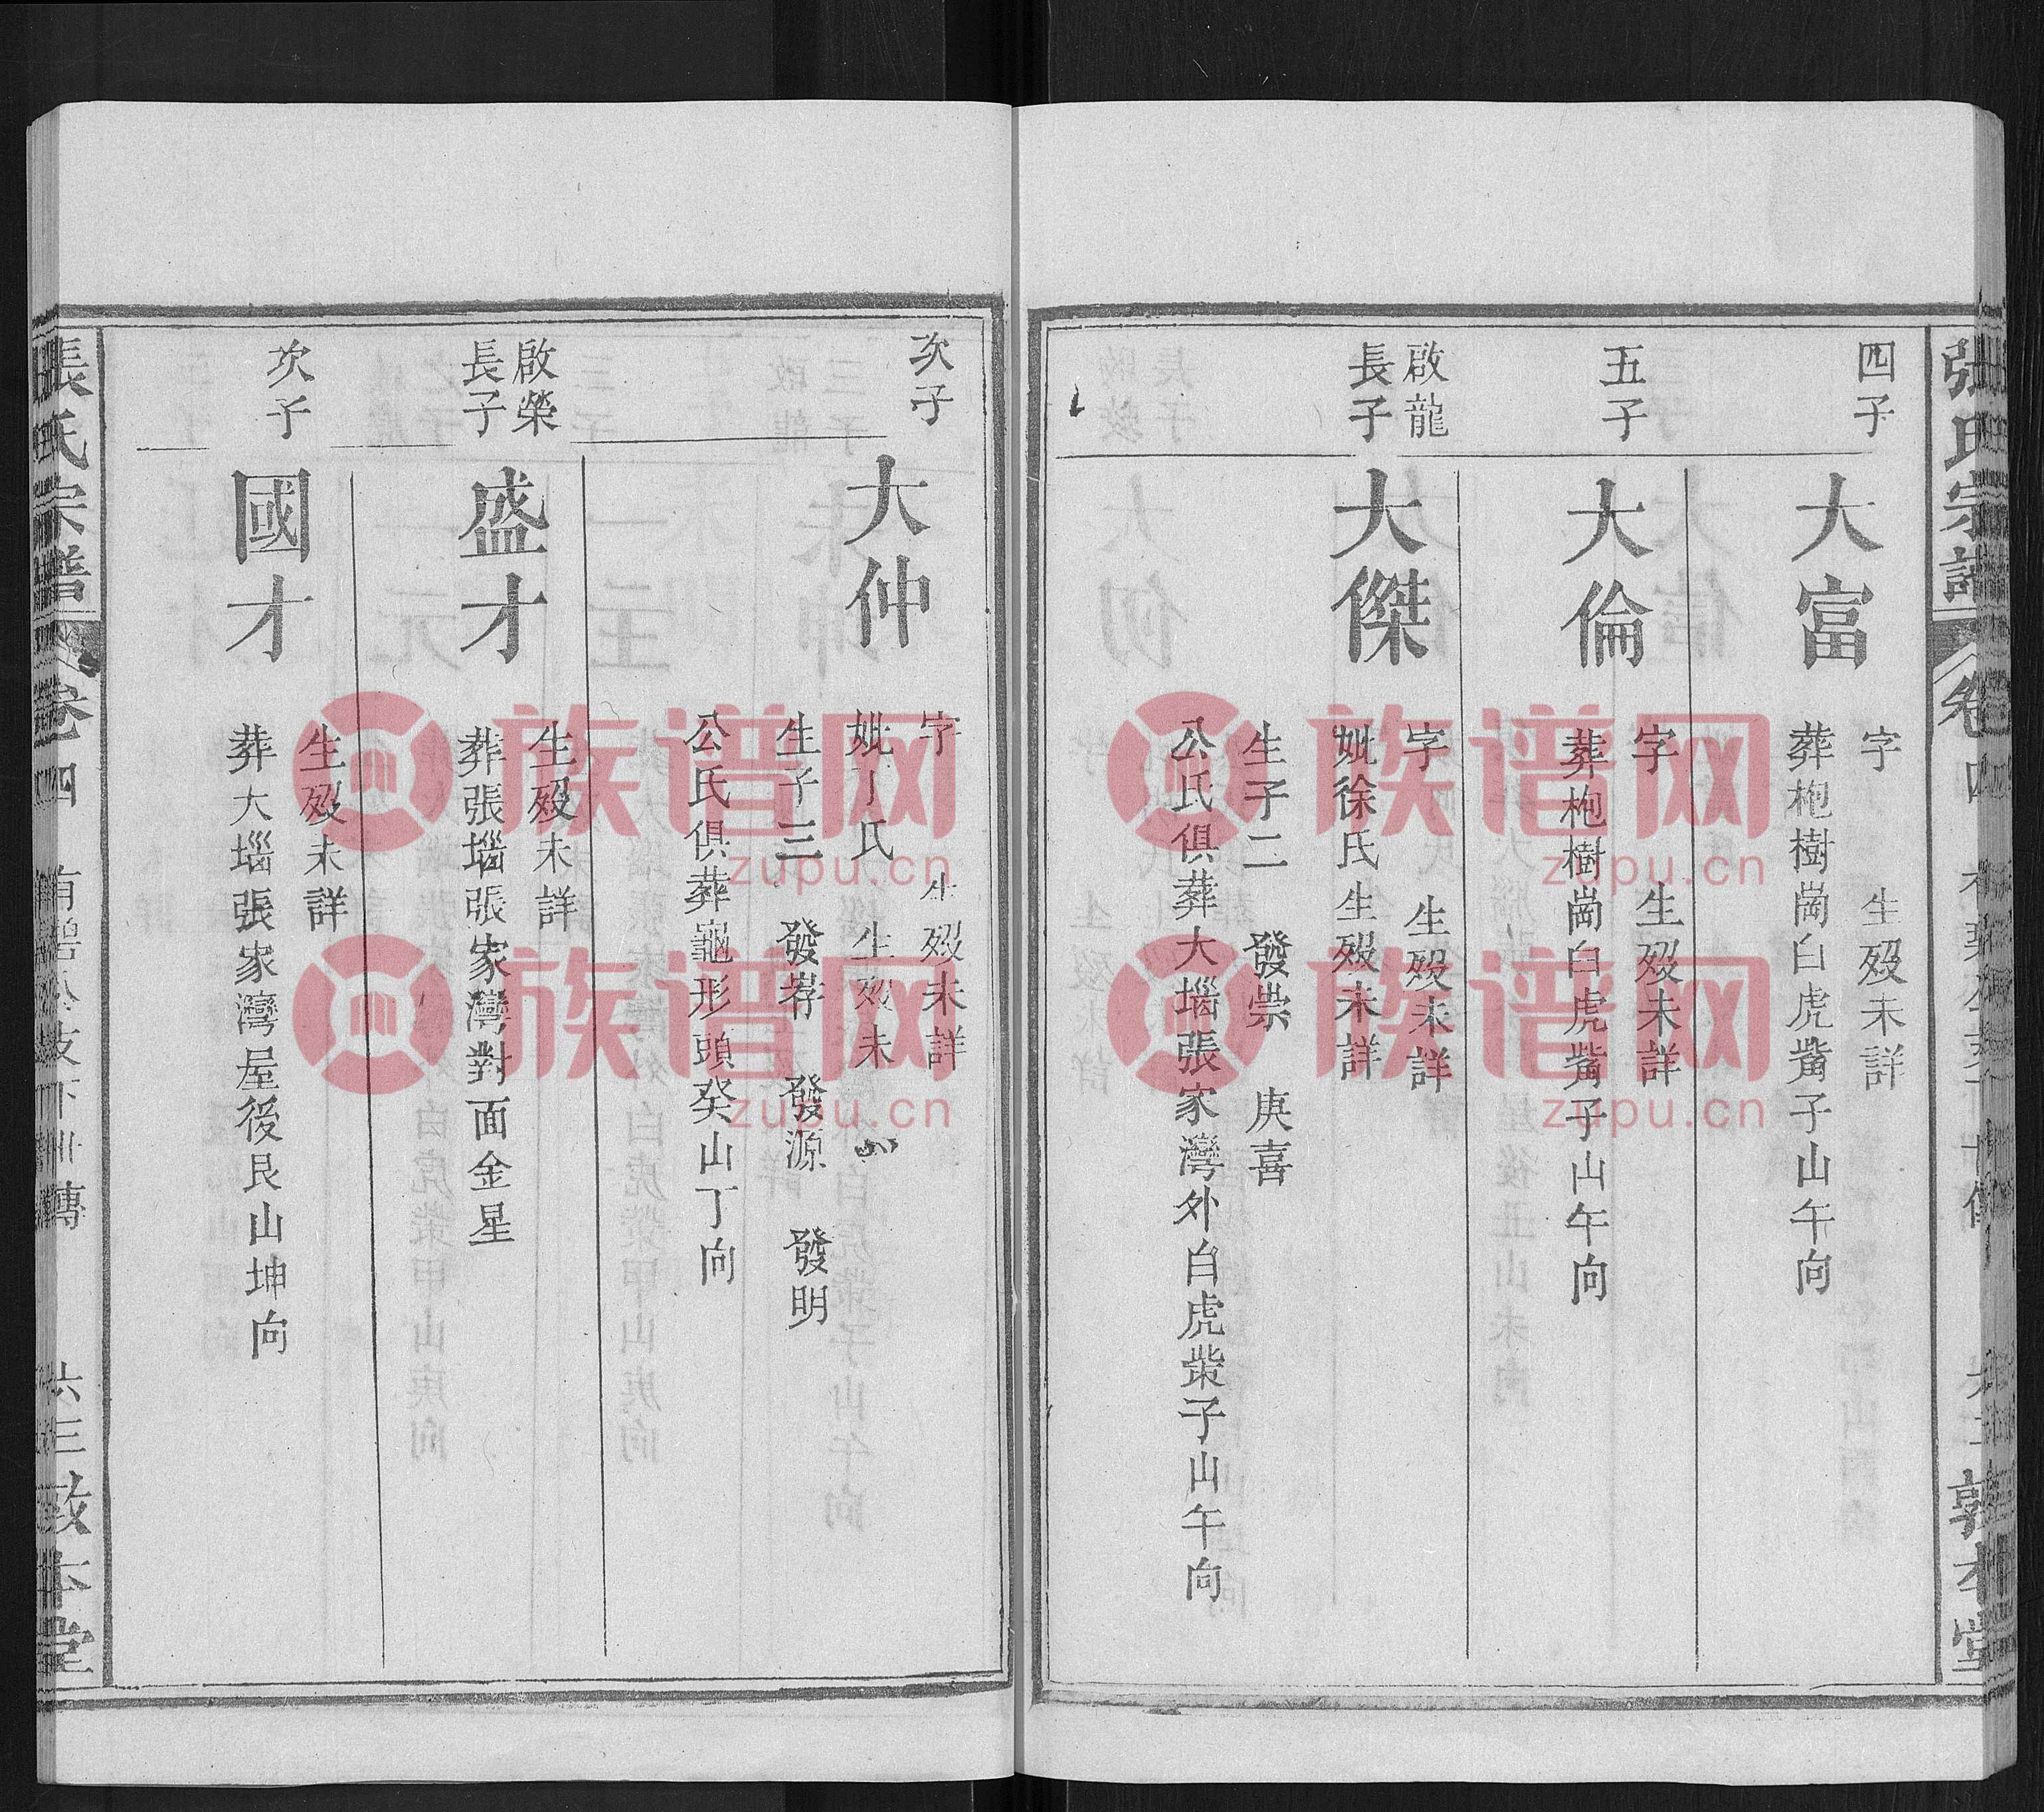 四子
大富
字 生歿未詳
葬枹樹崗白虎嘴子山午向
五子
大倫
字 生歿未詳
葬枹樹崗白虎嘴子山午向
啟龍
長子
大傑
字 生歿未詳
妣徐氏生歿未詳
生子二 發崇 庚喜
公氏俱葬大堖張家灣外白虎柴子山午向
次子
大仲
字 生歿未詳
妣丁氏 生歿未
生子三 發荐 發源 發明
公氏俱葬龜形頭癸山丁向
啟榮
長子
盛才
生歿未詳
葬張堖張家灣對面金星
次子
國才
生歿未詳
葬大堖張家灣屋後艮山坤向
張氏宗譜
卷四
六三敦本堂
族谱网
zupu.cn
族谱网
zupu.cn
族谱网
zupu.cn
族谱网
zupu.cn